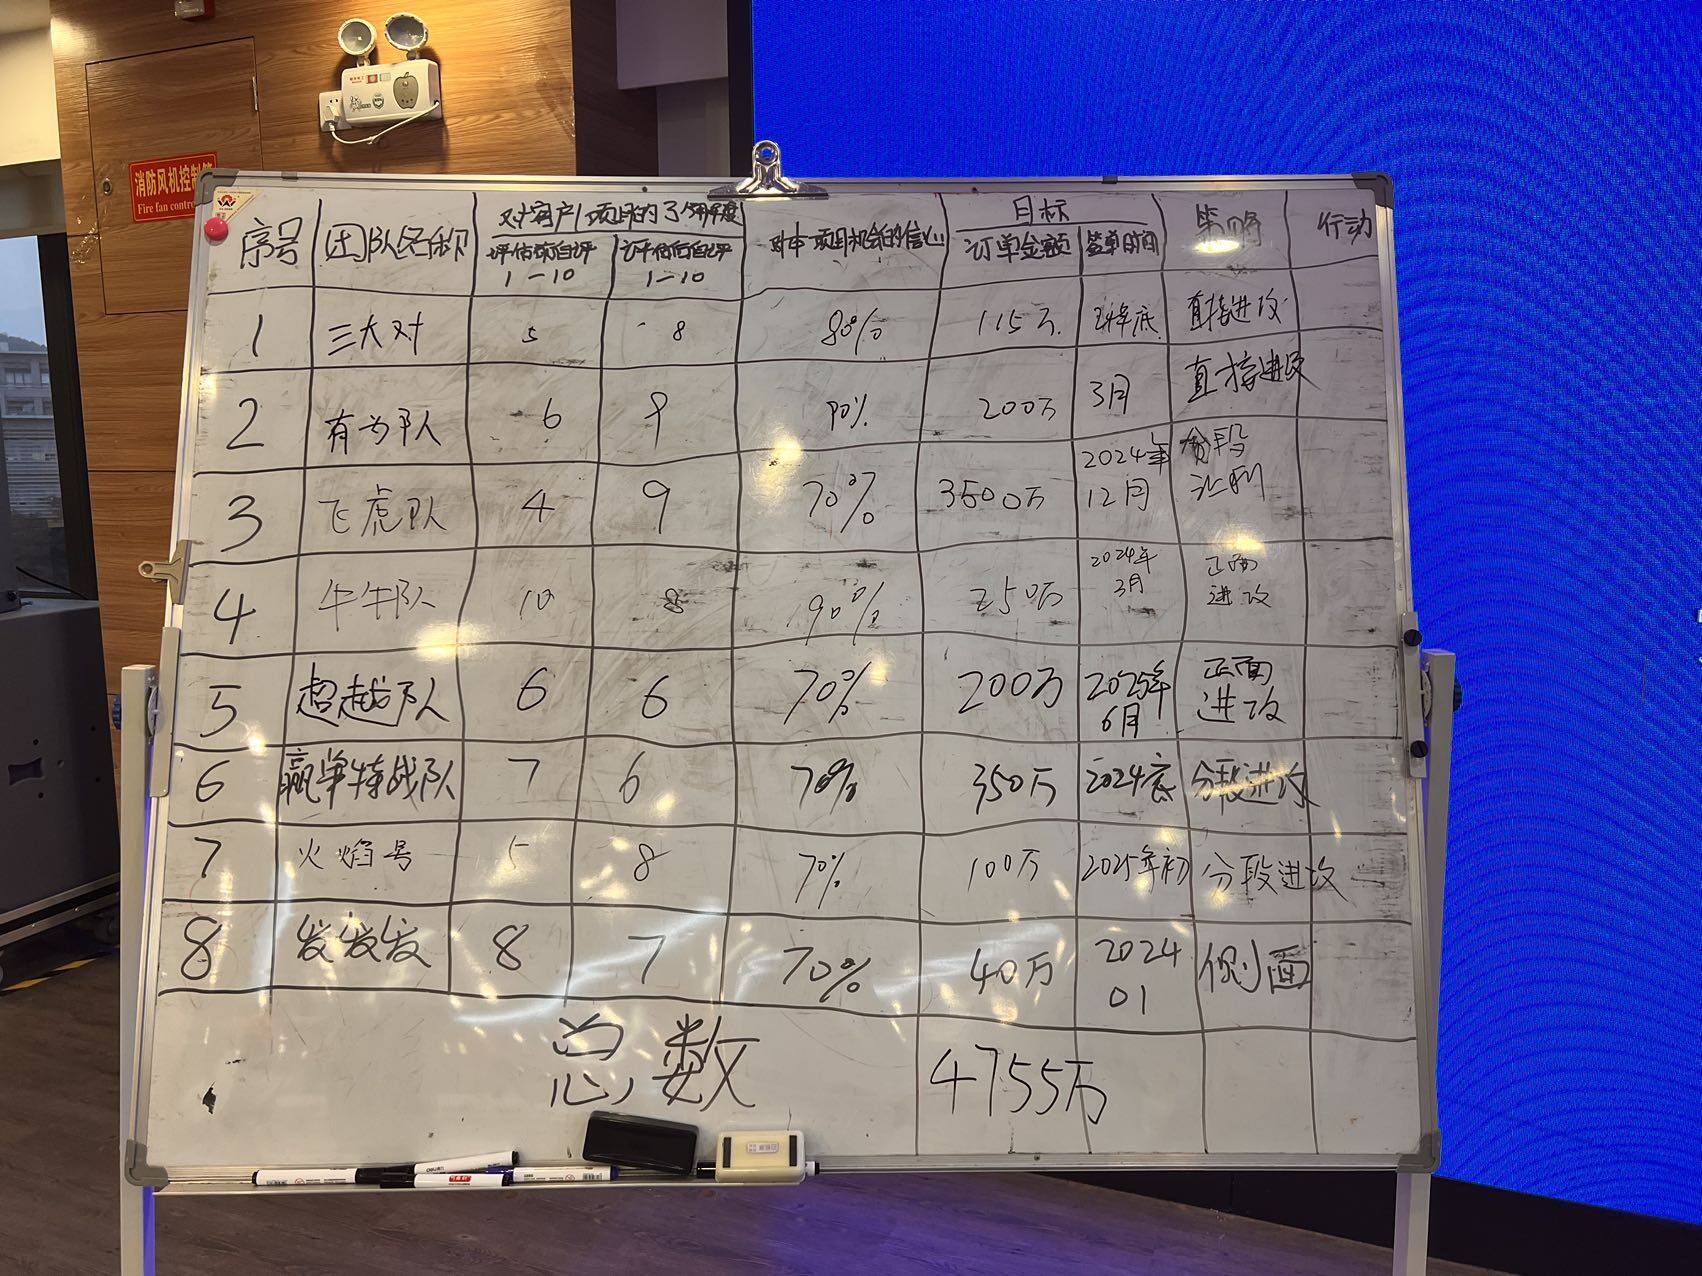 消防风机控制箱
Fire fan contro
对客户/项目的了解度
目标
序号 团队名称 评估前自评 1-10 评估后自评 1-10 对中项目机会的信心 订单金额 签单时间 策略 行动
1 三大对 5 8 80% 115万 底 直接进攻
2 有为队 6 9 90% 200万 3月 直接进攻
3 飞虎队 4 9 70% 3500万 2024年12月 分段
4 牛牛队 10 8 90% 250万 2024年3月 正面进攻
5 超越队 6 6 70% 200万 2025年6月 正面进攻
6 赢单特战队 7 6 70% 350万 2024底 分段进攻
7 火焰号 5 8 70% 100万 2025年初 分段进攻
8 发发发 8 7 70% 40万 2024 01 侧面
总数 4755万